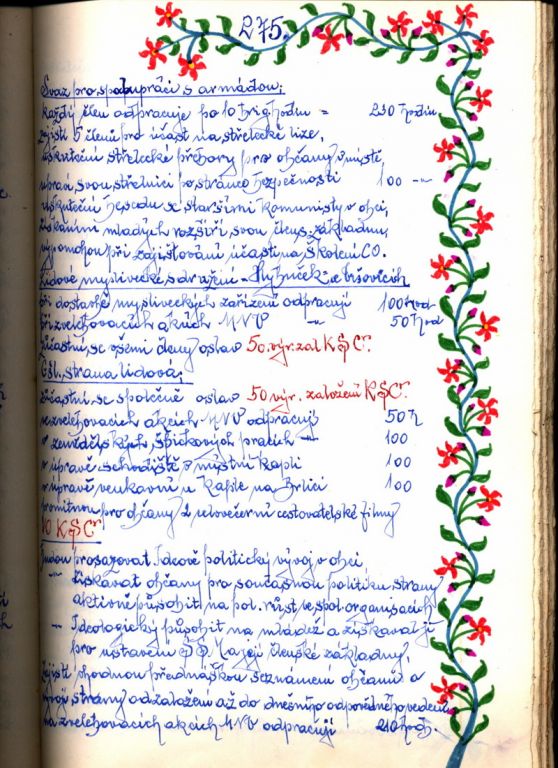 275.
Svaz pro spolupráci s armádou:
Každý člen odpracuje po 10 brig. hodin = 230 hodin
zajistí 5 členů pro účast na střelecké lize,
uskuteční střelecké přebory pro občany v místě,
upraví svou střelnici po stránce bezpečnosti 100 -"-
uskuteční besedu se staršími komunisty v obci,
získáním mladých rozšíří svou člens. základnu,
vypomohou při zajišťování účasti na školení CO.
Lidové myslivecké sdružení -
při dostavbě mysliveckých zařízení odpracují 100 hod
při zvelebovacích akcích MNV -"- 50 hod
zúčastní se všemi členy oslav 50. výr. zal. KSČ.
Čsl. strana lidová:
zúčastní se společně oslav 50 výr. založení KSČ.
ve zvelebovacích akcích MNV odpracují 50 h
v zemědělských špičkových pracích -"- 100
v úpravě schodiště v místní kapli 100
v úpravě venkovní u kaple na 100
promítnou pro občany 2 celovečerní cestovatelské filmy
VO KSČ
budou prosazovat ideově politický vývoj v obci
-"- získávat občany pro současnou politiku strany
aktivně působit na pol. růst ve spol. organisacích
-"- Ideologicky působit na mládež a získávat ji
pro ustavení členské základny,
zajistí vhodnou přednáškou seznámení občanů o
vývoji strany od založení až do dnešního odpovědného vedení
na zvelebovacích akcích MNV odpracují 210 hod.